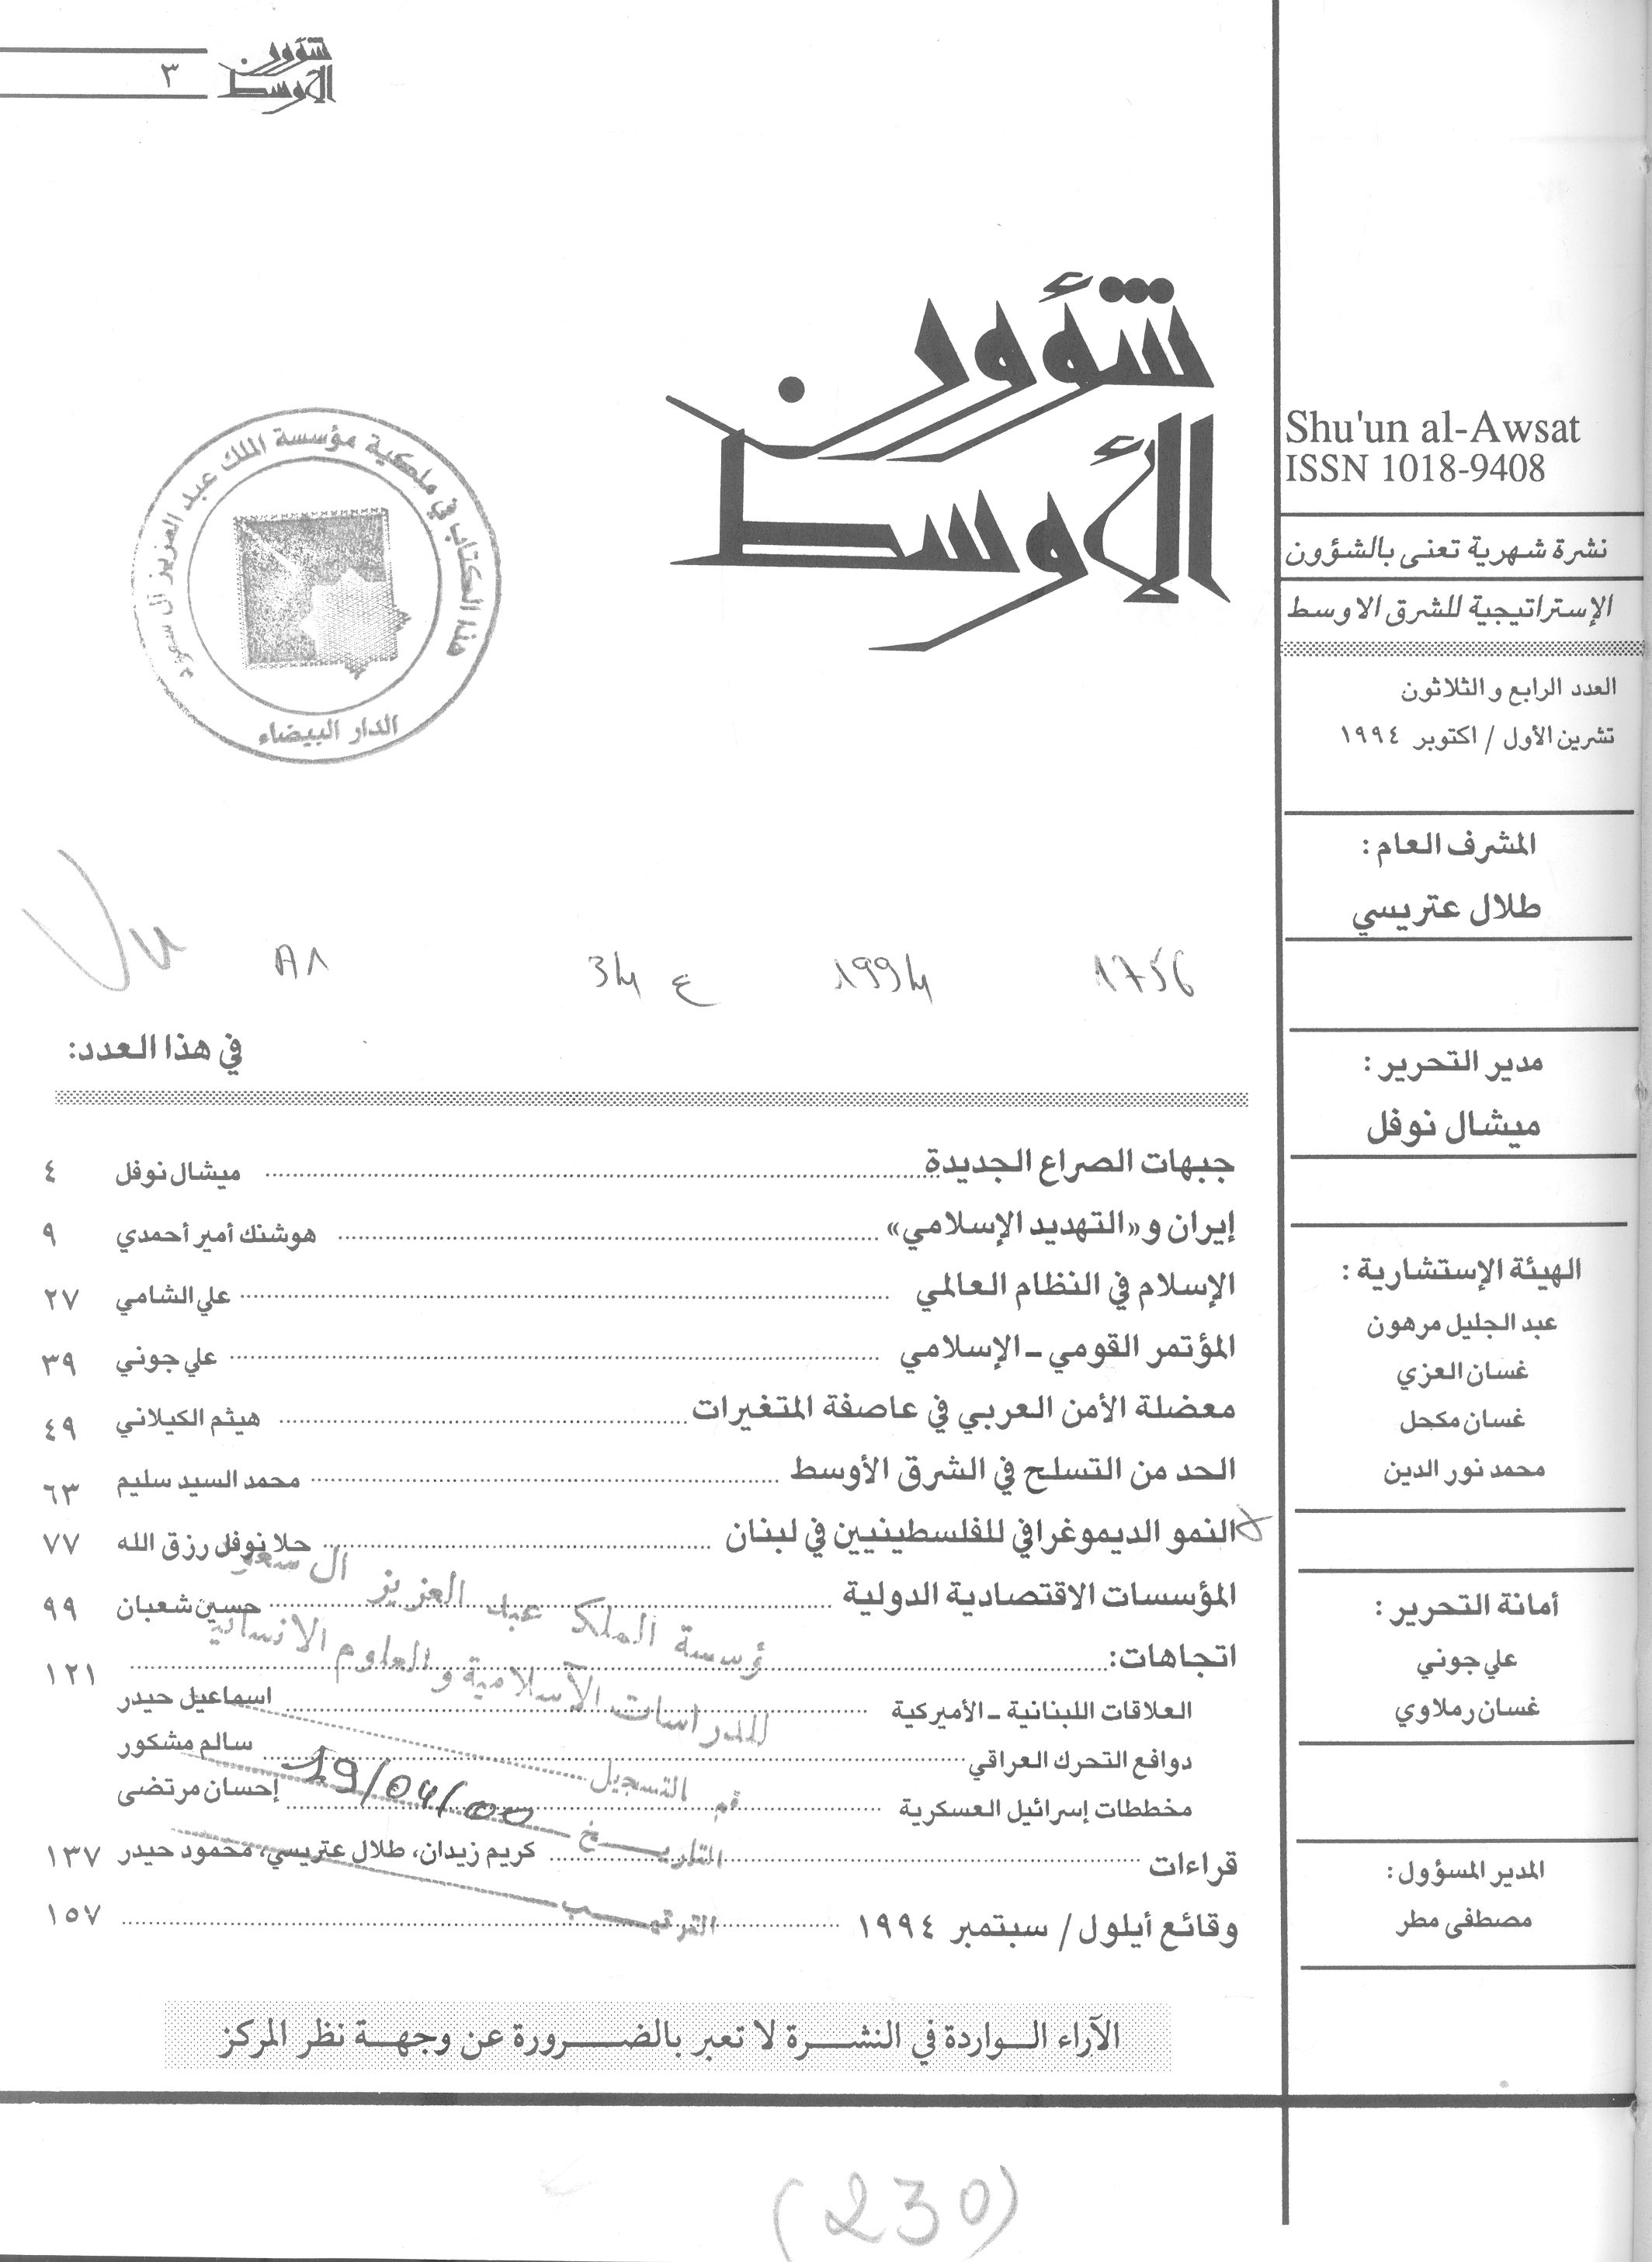 شؤون
الأوسط
٣
شؤون
الأوسط
Shu'un al-Awsat
ISSN 1018-9408
نشرة شهرية تعنى بالشؤون
الإستراتيجية للشرق الاوسط
العدد الرابع والثلاثون
تشرين الأول / اكتوبر ١٩٩٤
المشرف العام :
طلال عتريسي
مدير التحرير :
ميشال نوفل
الهيئة الإستشارية :
عبد الجليل مرهون
غسان العزي
غسان مكحل
محمد نور الدين
أمانة التحرير :
علي جوني
غسان رملاوي
المدير المسؤول :
مصطفى مطر
هذا الكتاب في ملكية مؤسسة الملك عبد العزيز آل سعود
الدار البيضاء
Vu
1756 1994 ع 34
في هذا العدد:
جبهات الصراع الجديدة ميشال نوفل ٤
إيران و«التهديد الإسلامي» هوشنك أمير أحمدي ٩
الإسلام في النظام العالمي علي الشامي ٢٧
المؤتمر القومي ـ الإسلامي علي جوني ٣٩
معضلة الأمن العربي في عاصفة المتغيرات هيثم الكيلاني ٤٩
الحد من التسلح في الشرق الأوسط محمد السيد سليم ٦٣
النمو الديموغرافي للفلسطينيين في لبنان حلا نوفل رزق الله ٧٧
المؤسسات الاقتصادية الدولية حسين شعبان ٩٩
اتجاهات: ١٢١
العلاقات اللبنانية ـ الأميركية اسماعيل حيدر
دوافع التحرك العراقي سالم مشكور
مخططات إسرائيل العسكرية إحسان مرتضى
قراءات كريم زيدان، طلال عتريسي، محمود حيدر ١٣٧
وقائع أيلول / سبتمبر ١٩٩٤ ١٥٧
ؤسسة الملك عبد العزيز ال سعود
للدراسات الاسلامية والعلوم الانسانية
قم التسجيل
التاريخ 19/04/00
الترتيب
الآراء الواردة في النشرة لا تعبر بالضرورة عن وجهة نظر المركز
(230)